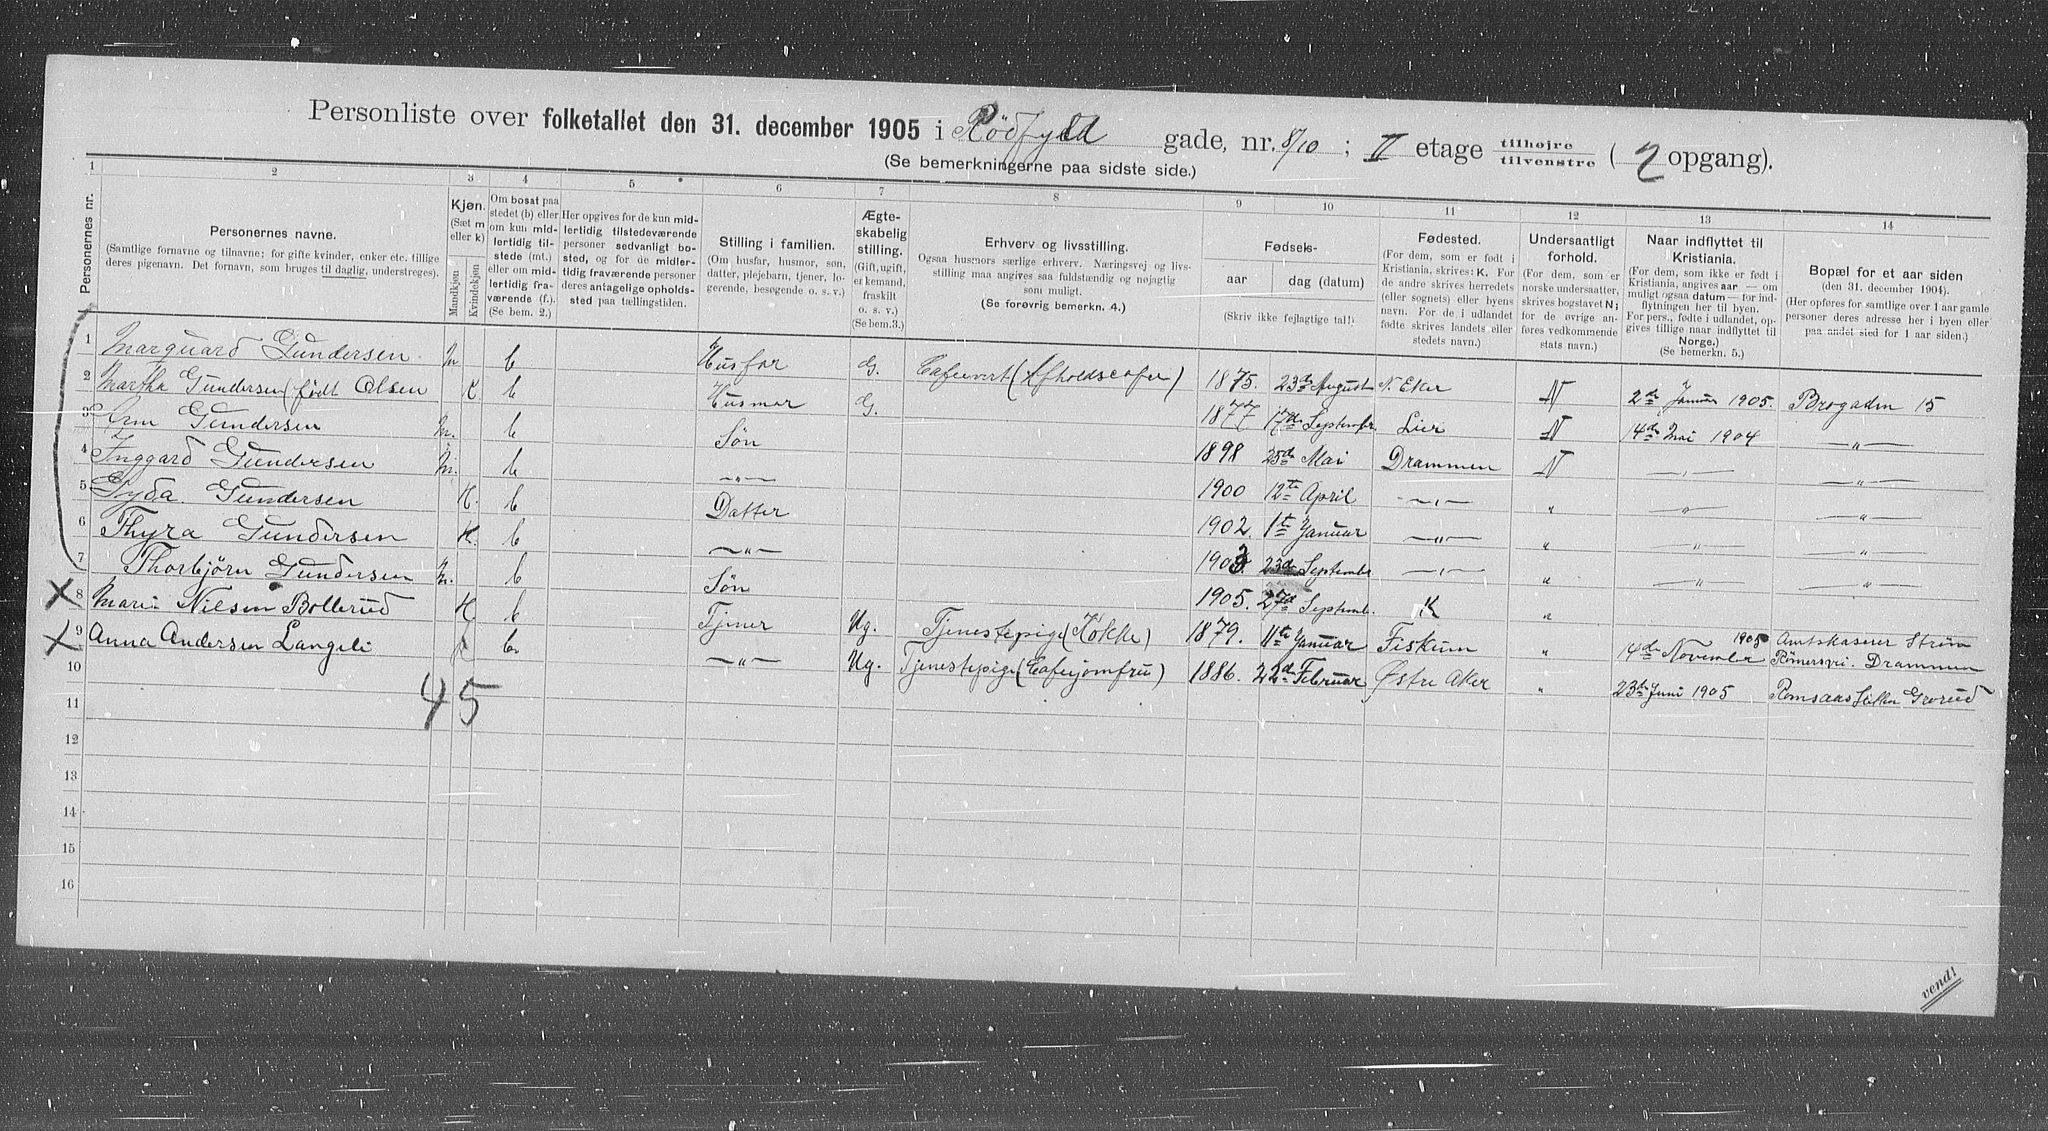 Personliste over folketallet den 31. december 1905 i Rödfyld gade, nr. 8/10 ; II etage tilhøjre tilvenstre ( 2 opgang).
(Se bemerkningerne paa sidste side.)
1 2 3 4 5 6 7 8 9 10 11 12 13 14
Personernes nr.
Personernes navne.
(Samtlige fornavne og tilnavne; for gifte kvinder, enker etc. tillige
deres pigenavn. Det fornavn, som bruges til daglig, understreges).
Kjøn.
(Sæt m
eller k)
Mandkjøn
Kvindekjøn
Om bosat paa
stedet (b) eller
om kun mid-
lertidig til-
stede (mt.)
eller om mid-
lertidig fra-
værende (f.).
(Se bem. 2.)
Her opgives for de kun mid-
lertidig tilstedeværende
personer sedvanligt bo-
sted, og for de midler-
tidig fraværende personer
deres antagelige opholds-
sted paa tællingstiden.
Stilling i familien.
(Om husfar, husmor, søn,
datter, plejebarn, tjener, lo-
gerende, besøgende o. s. v.)
Ægte-
skabelig
stilling.
(Gift, ugift,
enkemand,
fraskilt
o. s. v.)
(Se bem.3.)
Erhverv og livsstilling.
Ogsaa husmors særlige erhverv. Næringsvej og livs-
stilling maa angives saa fuldstændig og nøjagtig
som muligt.
(Se forøvrig bemerkn. 4.)
Fødsels-
aar
dag (datum)
(Skriv ikke fejlagtige tal!)
Fødested.
(For dem, som er født i
Kristiania, skrives: K. For
de andre skrives herredets
(eller sognets) eller byens
navn. For de i udlandet
fødte skrives landets eller
stedets navn.)
Undersaatligt
forhold.
(For dem, som er
norske undersaatter,
skrives bogstavet N;
for de øvrige an-
føres vedkommende
stats navn.)
Naar indflyttet til
Kristiania.
(For dem, som ikke er født i
Kristiania, angives aar — om
muligt ogsaa datum — for ind-
flytningen her til byen.
For pers., fødte i udlandet, op-
gives tillige naar indflyttet til
Norge.)
(Se bemerkn. 5.)
Bopæl for et aar siden
(den 31. december 1904).
(Her opføres for samtlige over 1 aar gamle
personer deres adresse her i byen eller
paa andet sted for 1 aar siden.)
1 Marquard Gundersen m b Husfar G. Cafeevert (Afholdscafee) 1875. 23de August N. Eker N 2de Januar 1905. Brogaden 15
2 Martha Gundersen (født Olsen K. b Husmor G. 1877 17de Septembr Lier N 14de Mai 1904 — " —
3 Arn Gundersen m. b Søn 1898 25de Mai Drammen N — " — — " —
4 Inggard Gundersen m. b — " — 1900 12te April — " — " — " — — " —
5 Gyda Gundersen K. b Datter 1902. 1te Januar — " — " — " — — " —
6 Thyra Gundersen K. b — " — 1903 23de Septembr — " — " — " — — " —
7 Thorbjörn Gundersen m. b Søn 1905. 27d Septemb. K "
8 Marie Nilsen Bollerud K b Tjener Ug. Tjenestepige (Kokke) 1879. 11te Januar Fiskum " 14de November 1905 Amtskaserer Ström
Römersvei. Drammen
9 Anna Andersen Langeli K b. — " — Ug. Tjenestepige (Cafeejomfru) 1886. 22de Februar Østre Aker " 23de Juni 1905 Romsaas Grorud
10
45
11
12
13
14
15
16
vend!